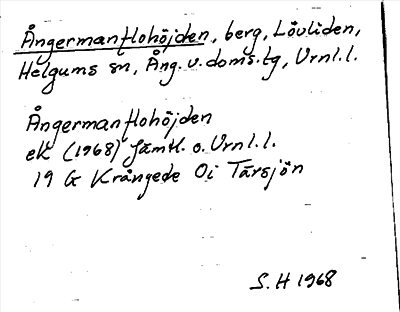 Ångermanflohöjden, berg, Lövliden,
Helgums sn, Ång. v. doms.tg, Vrnl.l.
Ångermanflohöjden
ek (1968) Jämtl. o. Vrnl.l.
19 G Krångede Oi Tärsjön
S.H 1968